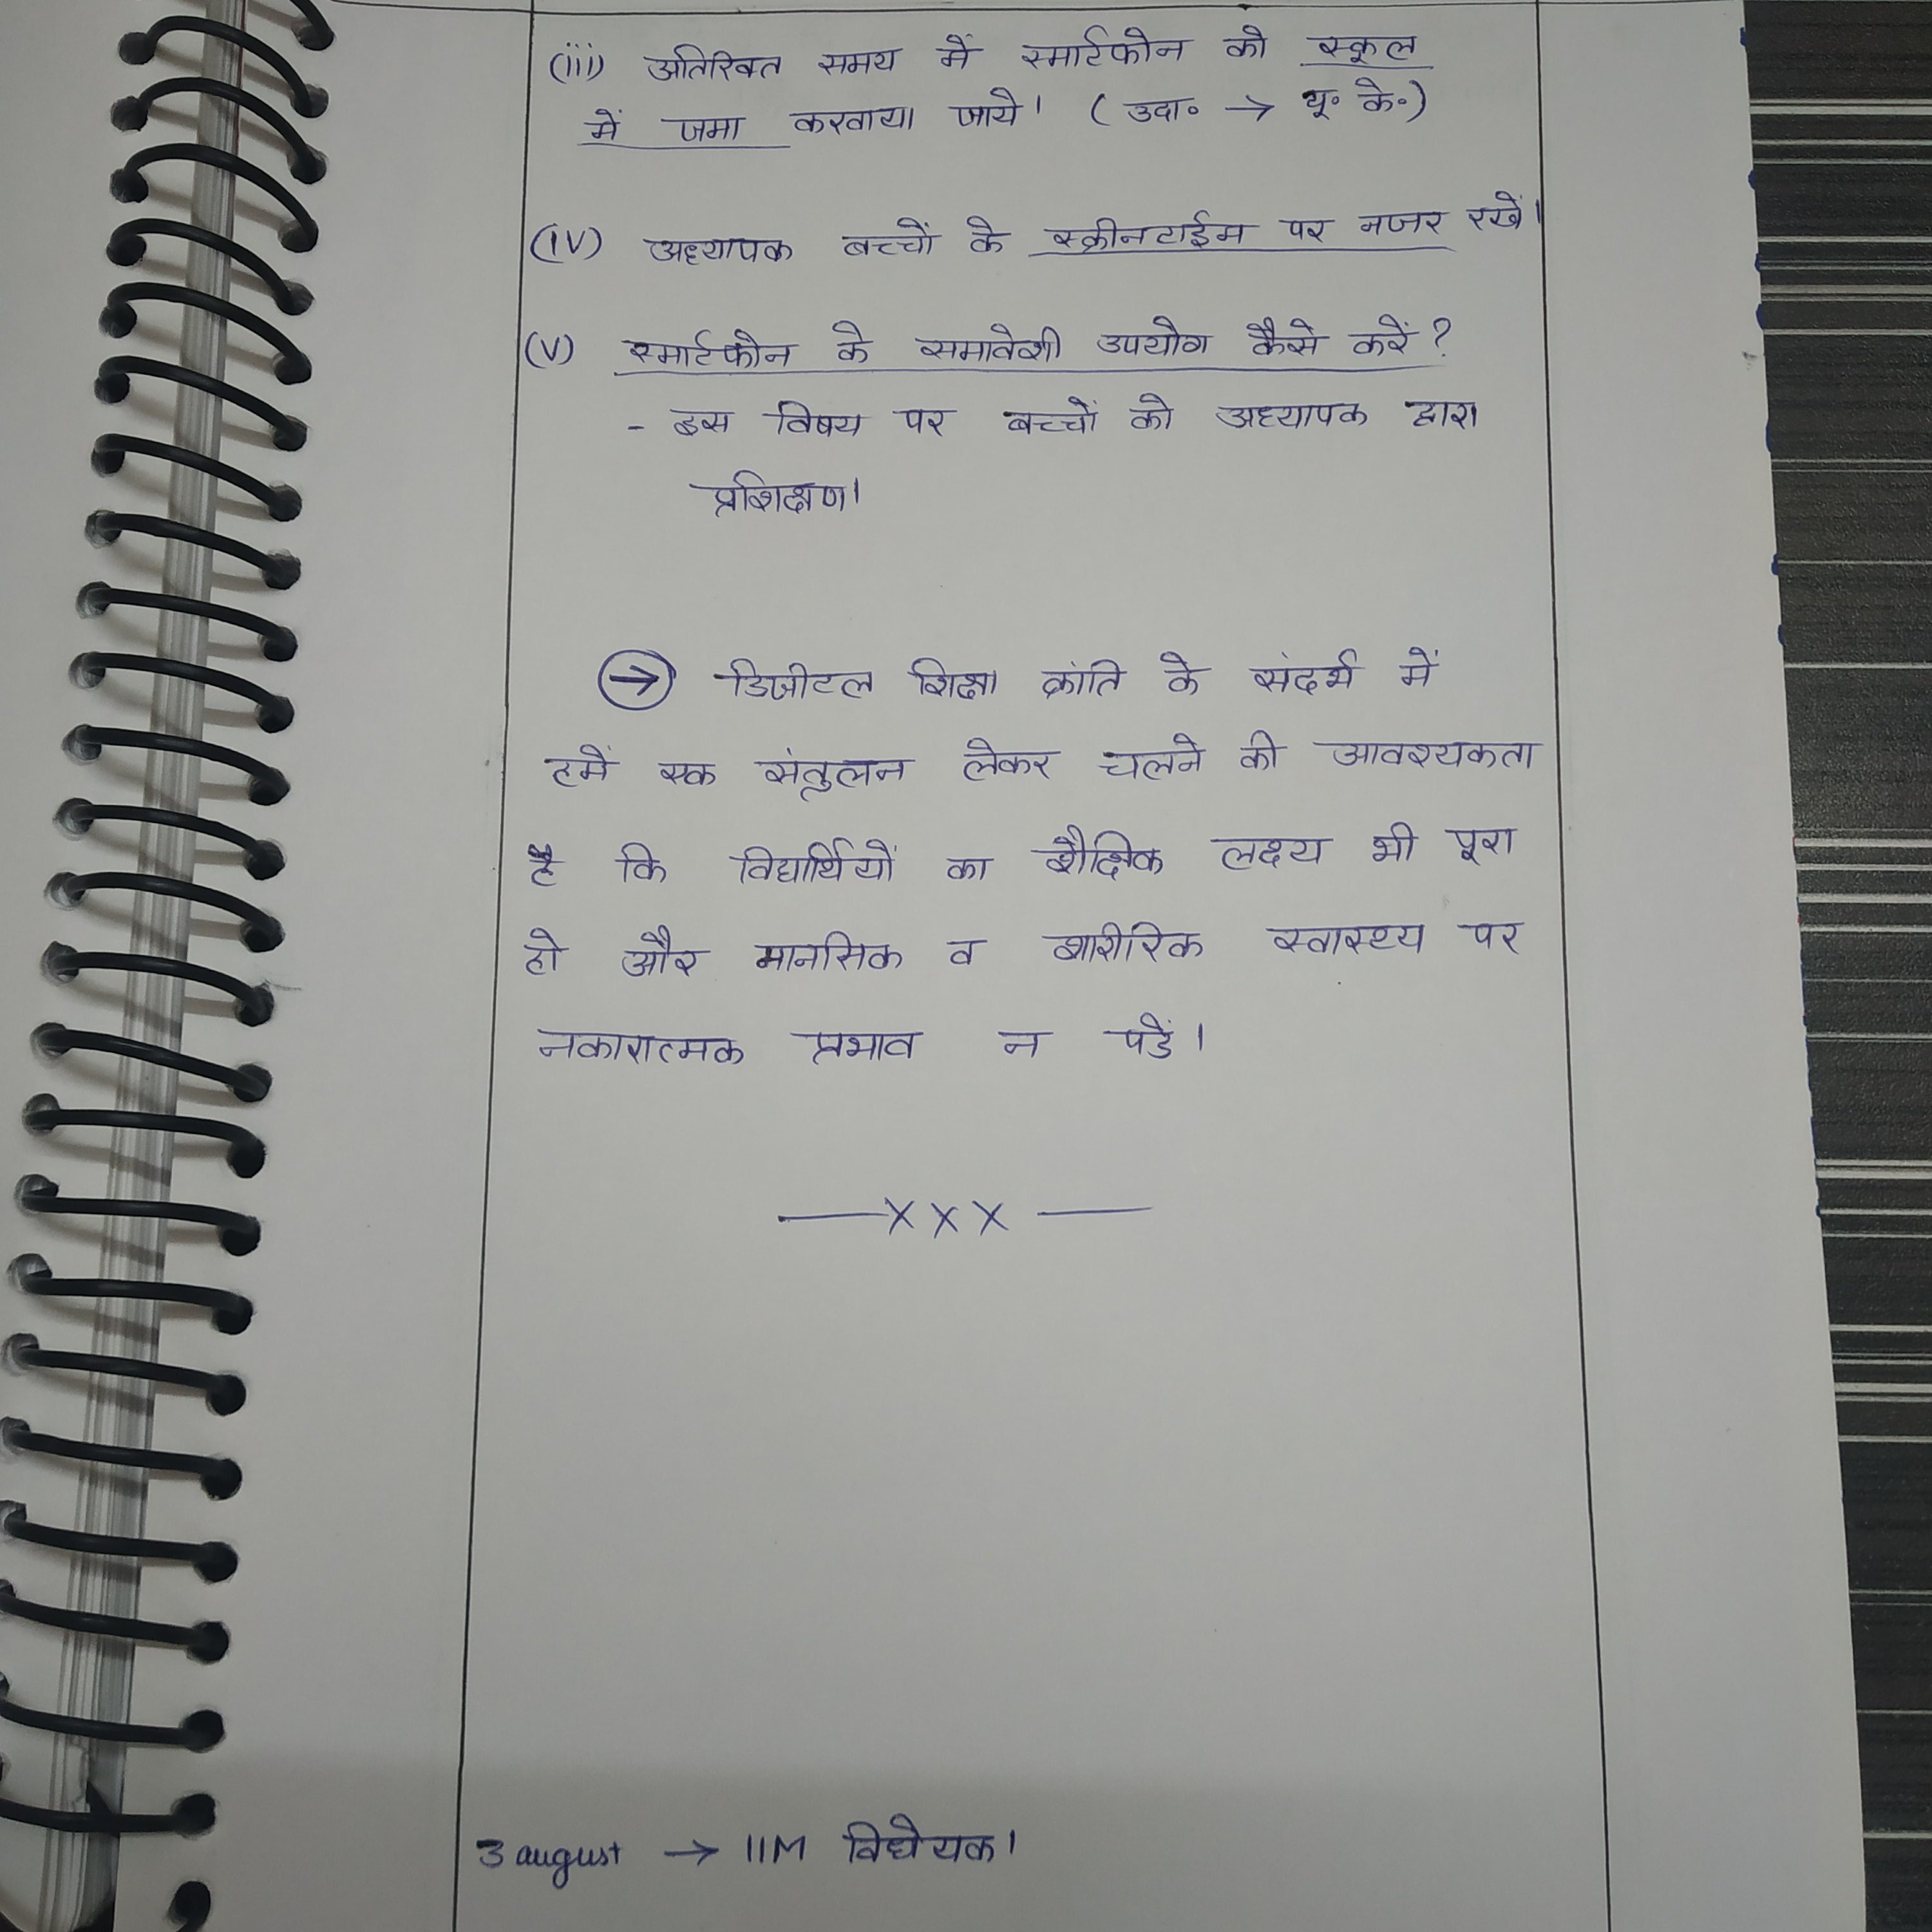 (iii) अतिरिक्त समय में स्मार्टफोन को स्कूल
में जमा करवाया जाये। ( उदा॰ → यू॰ के॰)
(iv) अध्यापक बच्चों के स्क्रीनटाईम पर नजर रखें।
(v) स्मार्टफोन के समावेशी उपयोग कैसे करें?
- इस विषय पर बच्चों को अध्यापक द्वारा
प्रशिक्षण।
→ डिजीटल शिक्षा क्रांति के संदर्भ में
हमें एक संतुलन लेकर चलने की आवश्यकता
है कि विद्यार्थियों का शैक्षिक लक्ष्य भी पूरा
हो और मानसिक व शारीरिक स्वास्थ्य पर
नकारात्मक प्रभाव न पडें।
—x x x —
3 august → IIM विधेयक।